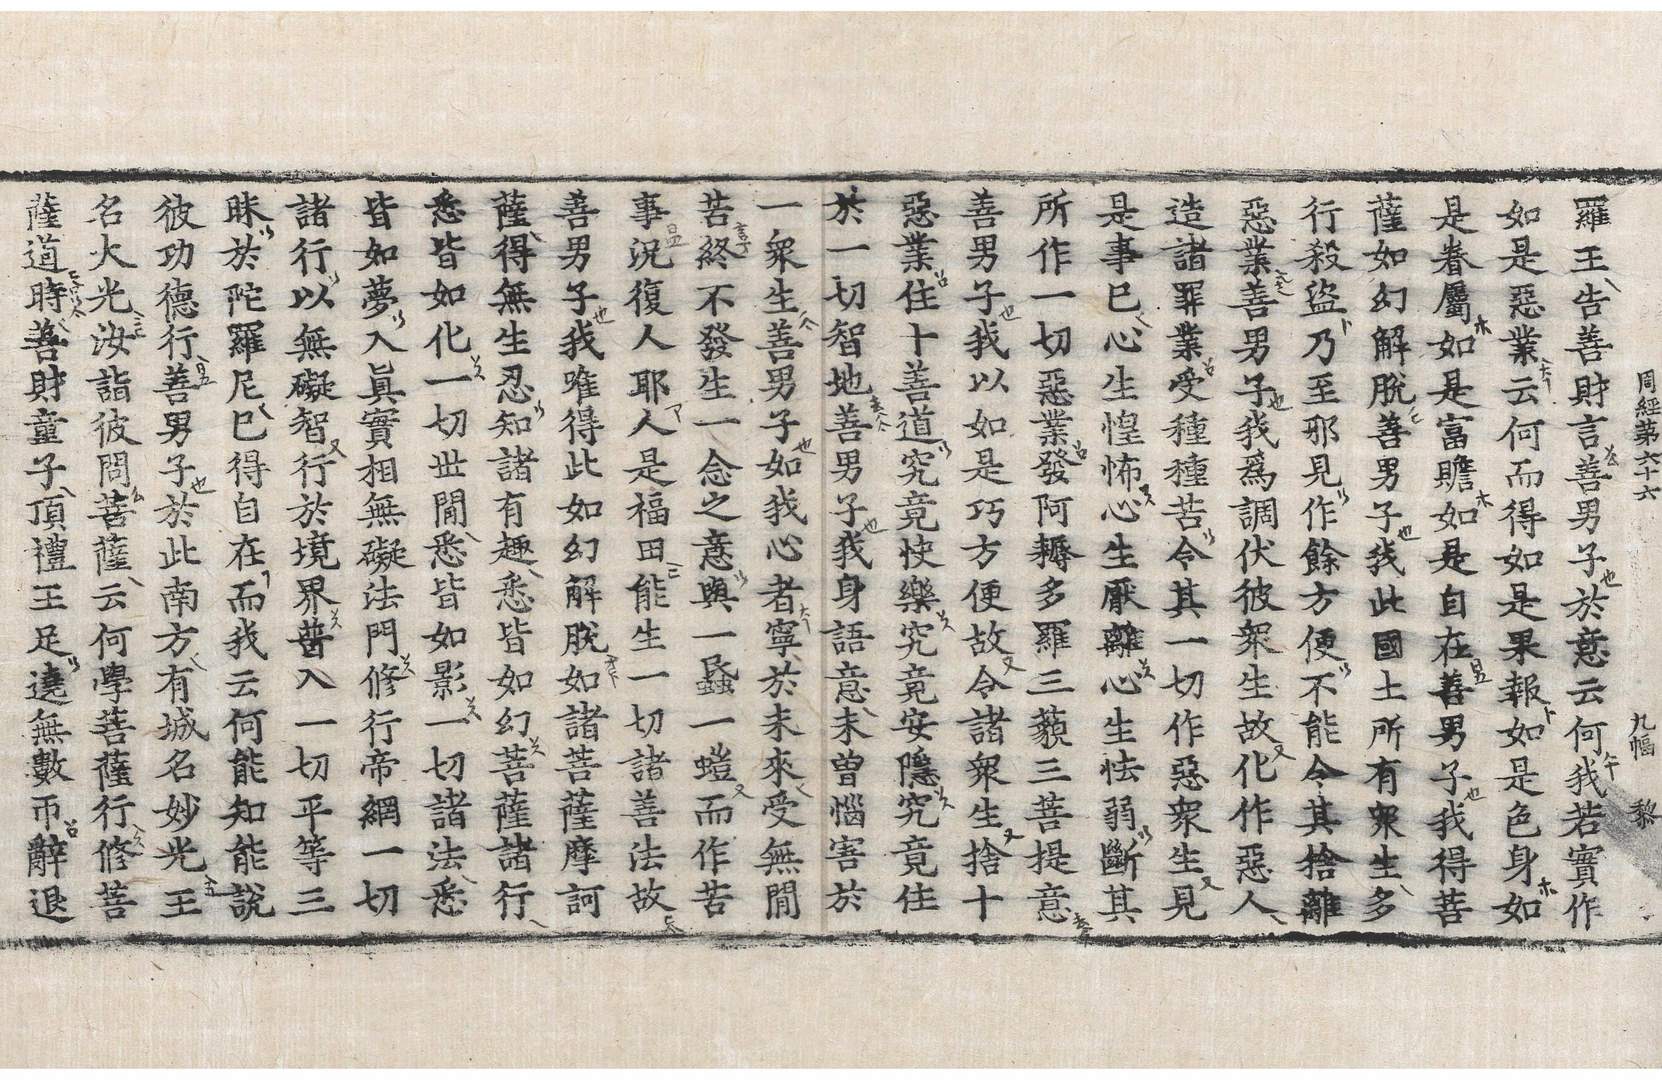 周經第六十六 九幅 黎
羅王告善財言善男子於意云何我若實作
如是惡業云何而得如是果報如是色身如
是眷屬如是富贍如是自在善男子我得菩
薩如幻解脫善男子我此國土所有衆生多
行殺盜乃至邪見作餘方便不能令其捨離
惡業善男子我爲調伏彼衆生故化作惡人
造諸罪業受種種苦令其一切作惡衆生見
是事已心生惶怖心生厭離心生怯弱斷其
所作一切惡業發阿耨多羅三藐三菩提意
善男子我以如是巧方便故令諸衆生捨十
惡業住十善道究竟快樂究竟安隱究竟住
於一切智地善男子我身語意未曾惱害於
一衆生善男子如我心者寧於未來受無間
苦終不發生一念之意與一蟁一螘而作苦
事況復人耶人是福田能生一切諸善法故
善男子我唯得此如幻解脫如諸菩薩摩訶
薩得無生忍知諸有趣悉皆如幻菩薩諸行
悉皆如化一切世間悉皆如影一切諸法悉
皆如夢入眞實相無礙法門修行帝網一切
諸行以無礙智行於境界普入一切平等三
昧於陀羅尼已得自在而我云何能知能說
彼功德行善男子於此南方有城名妙光王
名大光汝詣彼問菩薩云何學菩薩行修菩
薩道時善財童子頂禮王足遶無數帀辭退